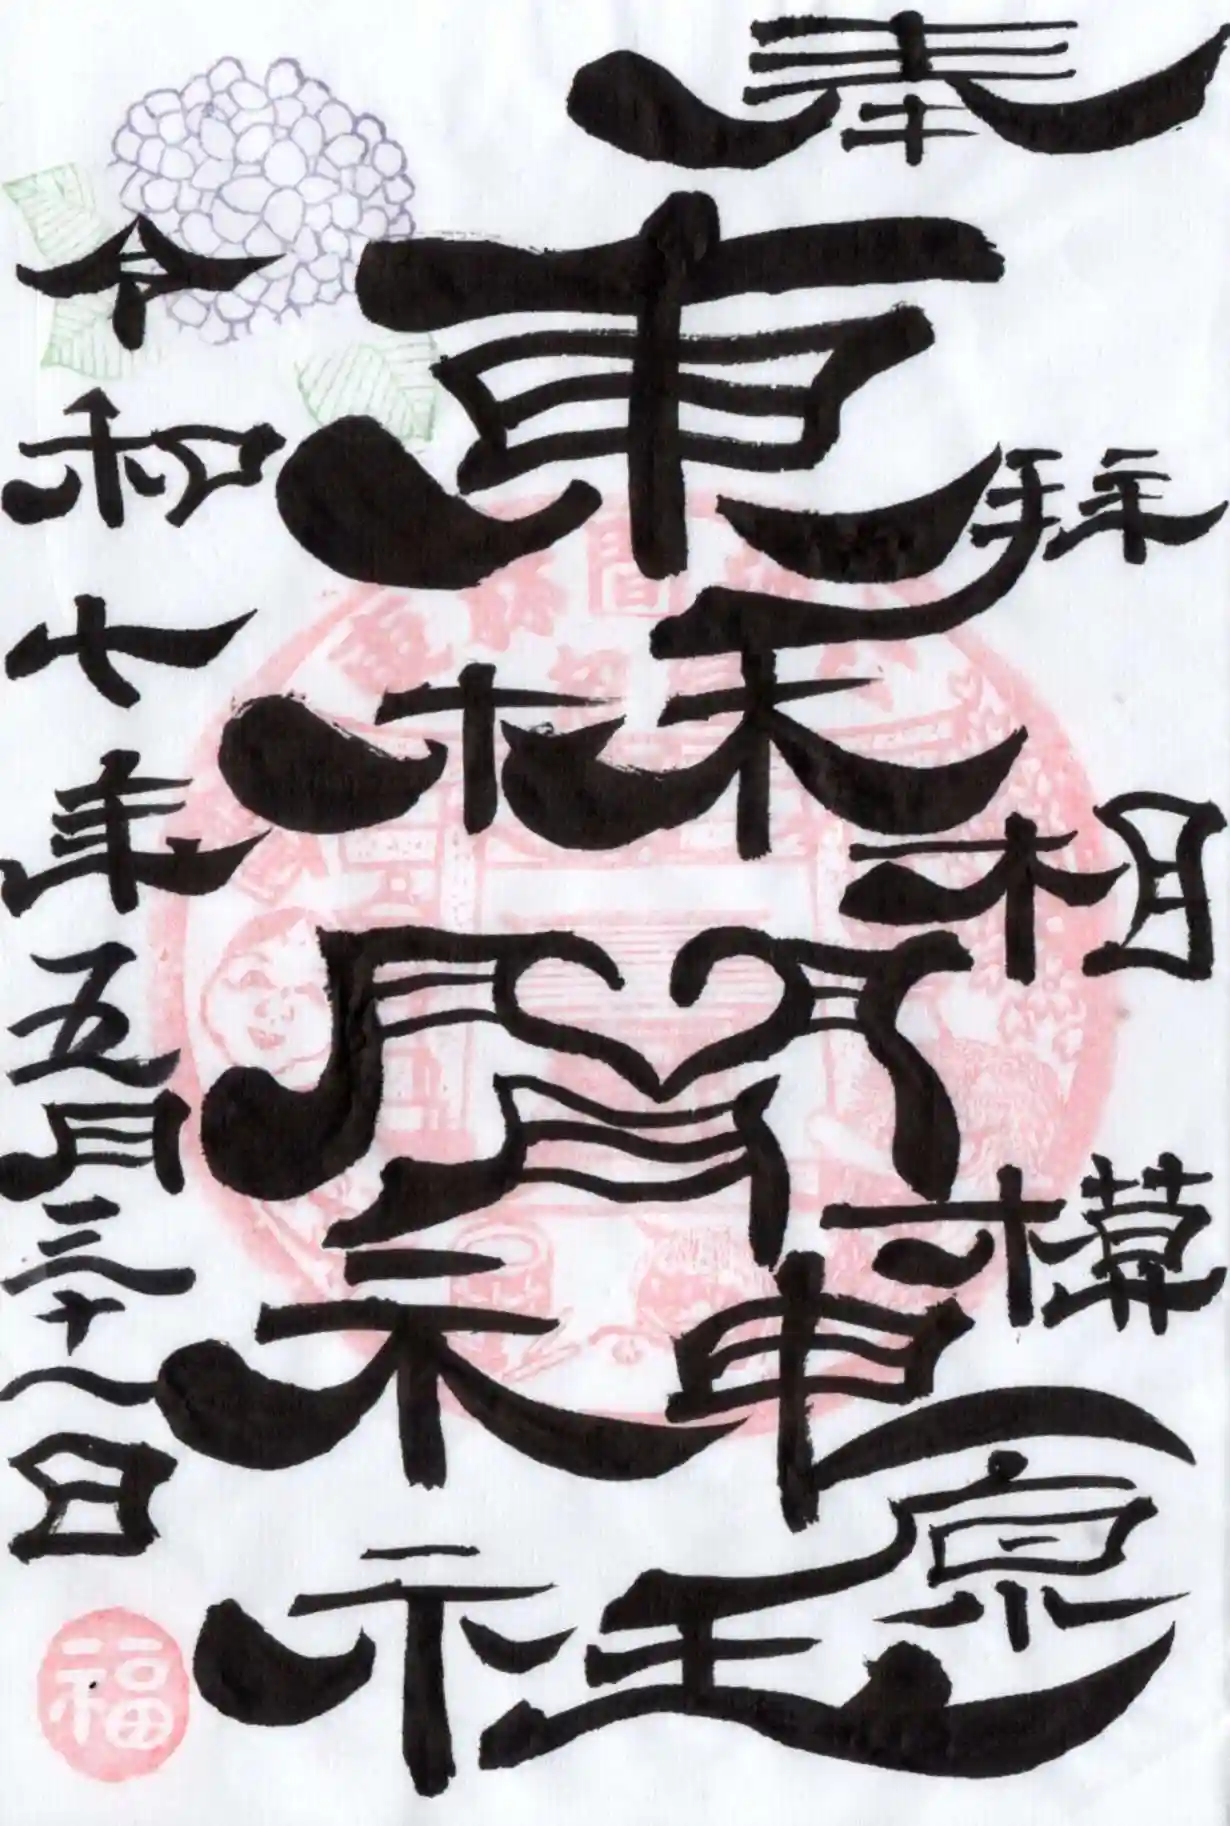 奉拝　相模原
東林間神社
令和七年五月三十一日
福